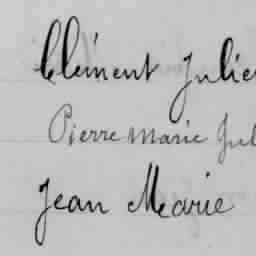 Clément Julie
Pierre Marie Jul
Jean Marie